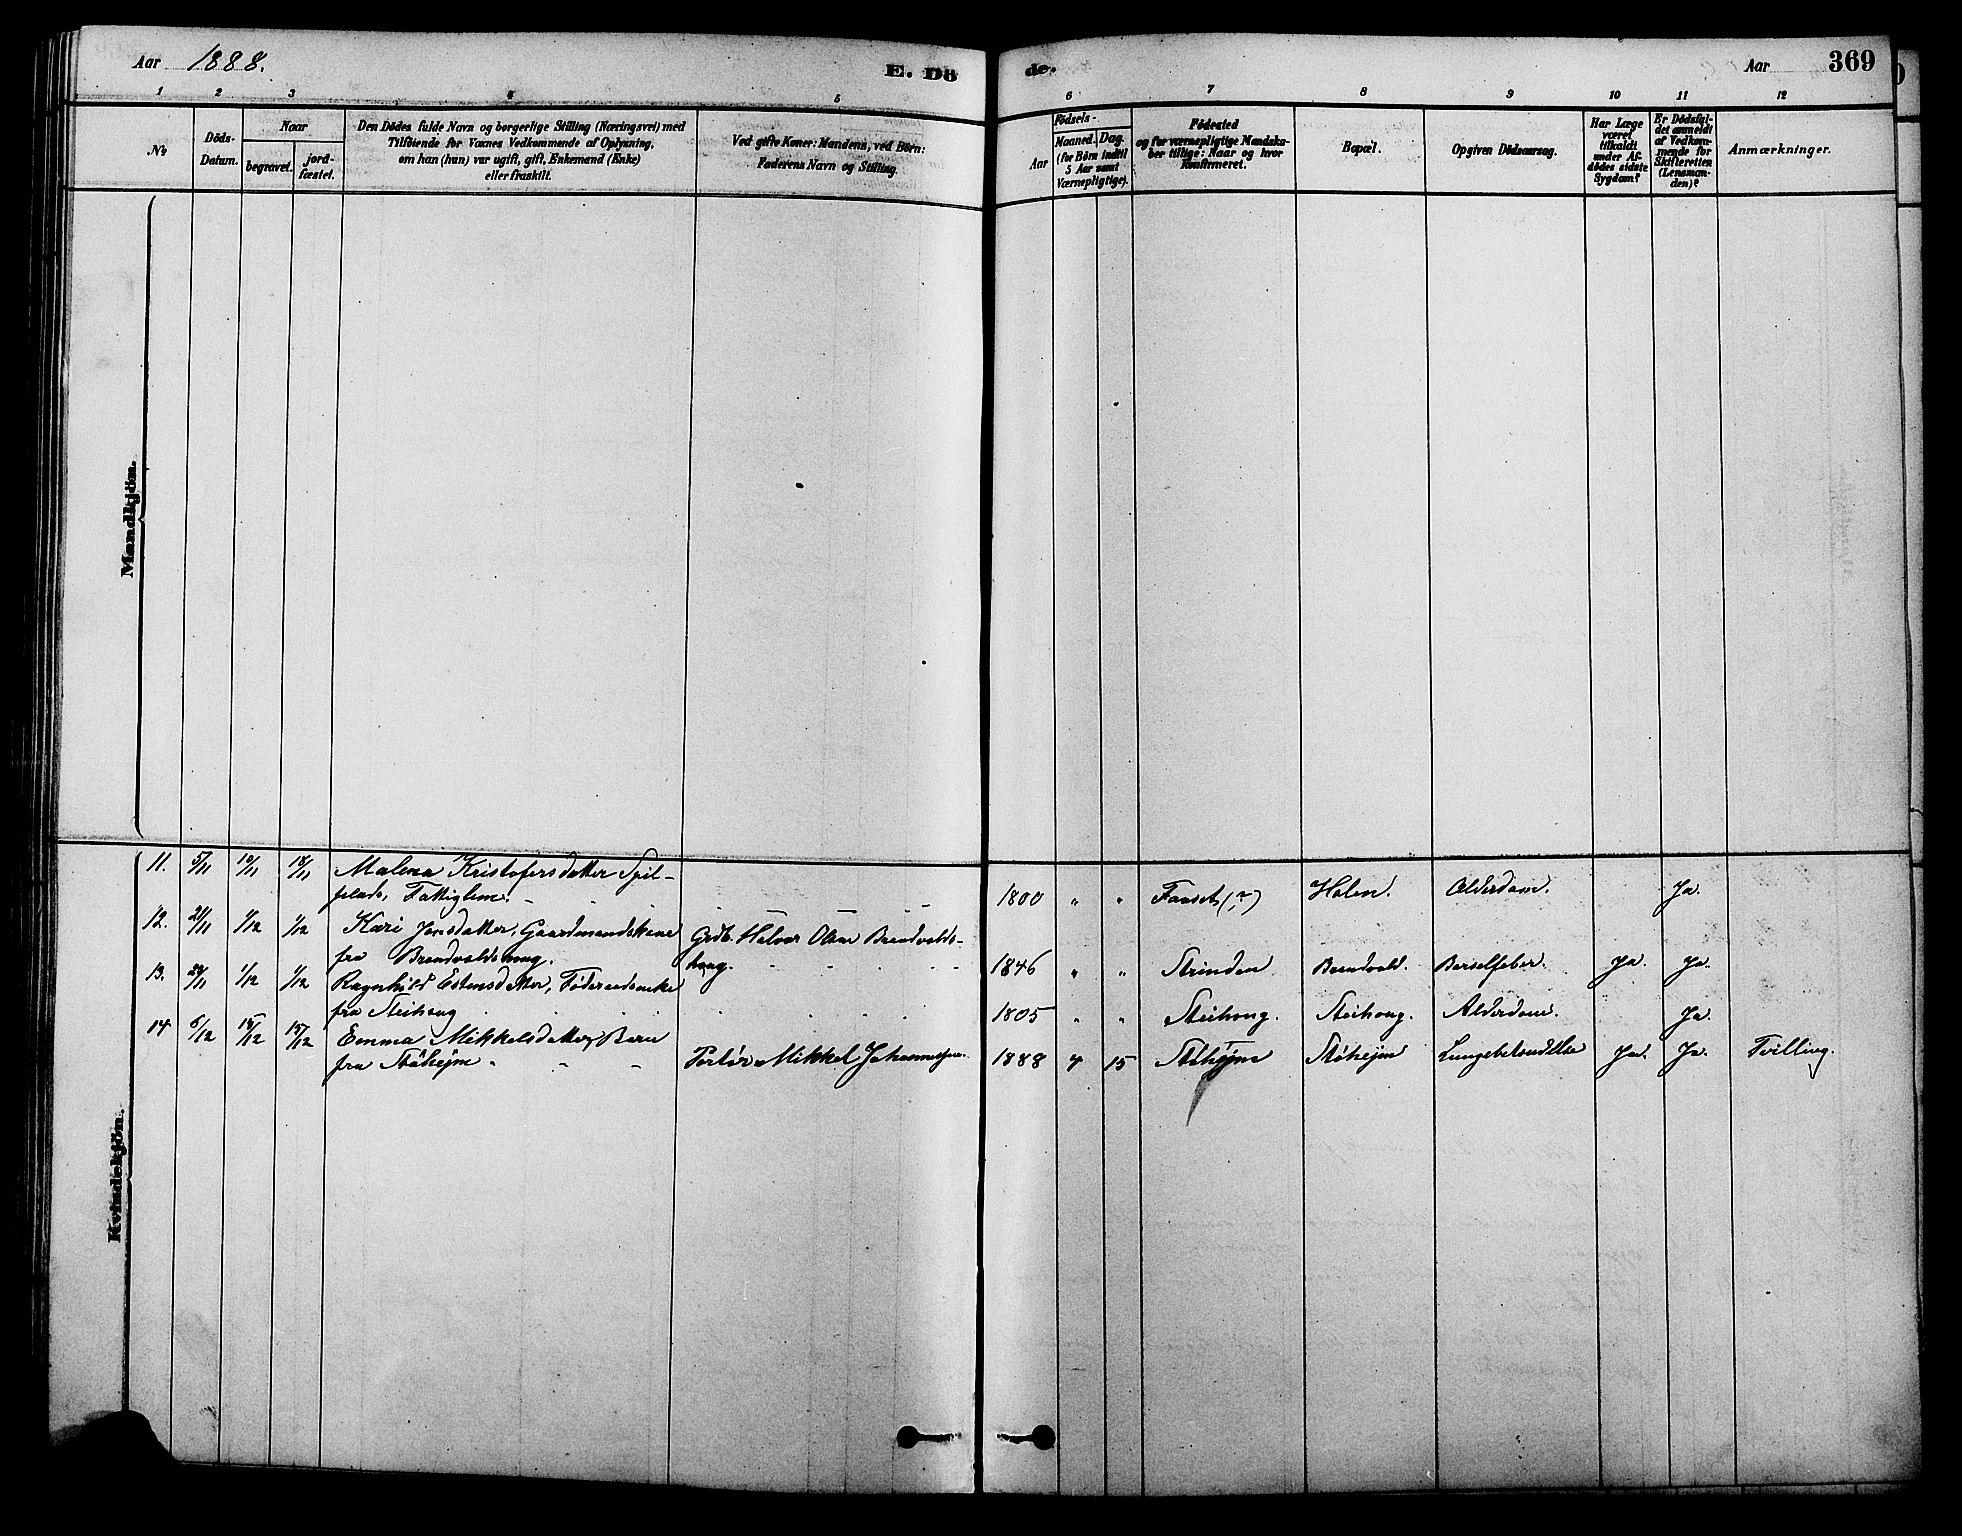 Aar 1888. E. Dö de. Aar 369
1 2 3 4 5 6 7 8 9 10 11 12
No
Döds-
Datum.
Naar
begravet.
jord-
fæstet.
Den Dödes fulde Navn og borgerlige Stilling (Næringsvei) med
Tilföiende for Voxnes Vedkommende af Oplysning,
om han (hun) var ugift, gift, Enkemand (Enke)
eller fraskilt.
Ved gifte Koner: Mandens, ved Börn:
Faderens Navn og Stilling.
Födsels-
Aar
Maaned.
Dag.
(for Börn indtil
5 Aar samt
Værnepligtige).
Födested
og for værnepligtige Mandska-
ber tillige: Naar og hvor
konfirmeret.
Bopæl.
Opgiven Dödsaarsag.
Har Læge
været
tilkaldt
under Af-
dödes sidste
Sygdom?
Er Dödsfal-
det anmeldt
af Vedkom-
mende for
Skifteretten
(Lensman-
den)?
Anmærkninger.
Mandkjön.
Kvindekjön.
11. 5/11 10/11 18/11 Malena Kristofersdatter Spil-
plads, Fattiglem. 1800 " " Faaset (?) Holen. Alderdom. Ja.
12. 1/12 1/12 Kari Jonsdatter, Gaardmandskone Grdb. Halvor Olsen Brendvolds-
fra Brendvoldshaug. haug. 1846 " " Strinden Brendvold. Barselfeber. Ja. Ja.
13. 1/12 1/12 Ragnhild Estensdatter, Föderaadsenke
fra Steihaug 1805 " " Steihaug. Steihaug. Alderdom. Ja.
14 6/12 15/12 Emma Mikkelsdatter, Barn
fra Støhejm Portör Mikkel Johannes 1888 4 15 Støhejm Støhejm Lungebetændelse Ja. Ja. Tvilling.